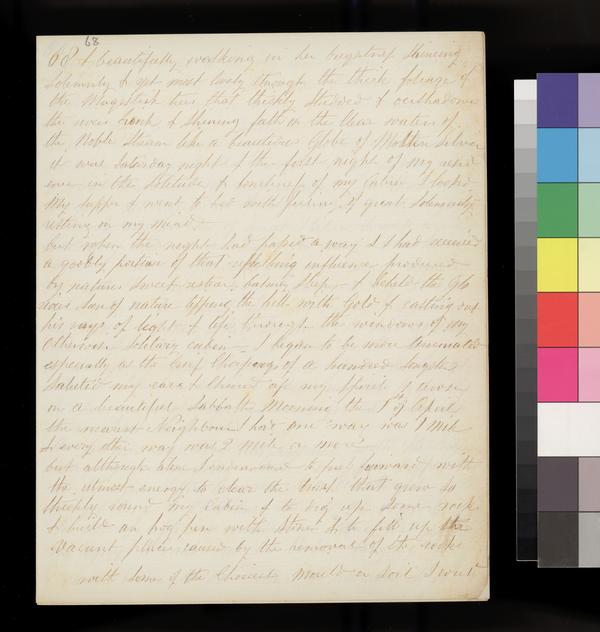 68
68 & beautifully walking in her brightness shineing
solemnly & yet most lovly through the thick foliage of
the Majestick trees that thickly studded & overshadowed
the river bank & shining full on the clear waters of
the Noble stream like a beautious Globe of Molten silver
it was Saturday night & the first night of my resid
ence in the solitude & loneliness of my Cabin I cooked
My supper & went to bed with feelings of great solemnity
resting on my mind.
but when the night had passed a way & I had received
a goodly portion of that refreshing influence produced
by natures sweet restorer balmy sleep & beheld the glo
rious sun of nature tipping the hills with Gold & casting out
his rays of light & life through the windows of my
otherwise solitary cabin I began to be more animated
especially as the brisk chirpings of a hundred songsters
saluted my ears & cheered up my spirits I arose
on a beautiful Sabbath Morning the 1st of April
the nearest Neighbour I had one way was 1 Mile
& every other way was 2 Mile or more
but although alone I endeavoured to push forward with
the utmost energy to clear the brush that grew so
thickly round my cabin & to dig up some rocks
& build an hog pen with stone & to fill up the
vacant places caused by the removal of the rocks
with some of the Choicest mould or soil I could